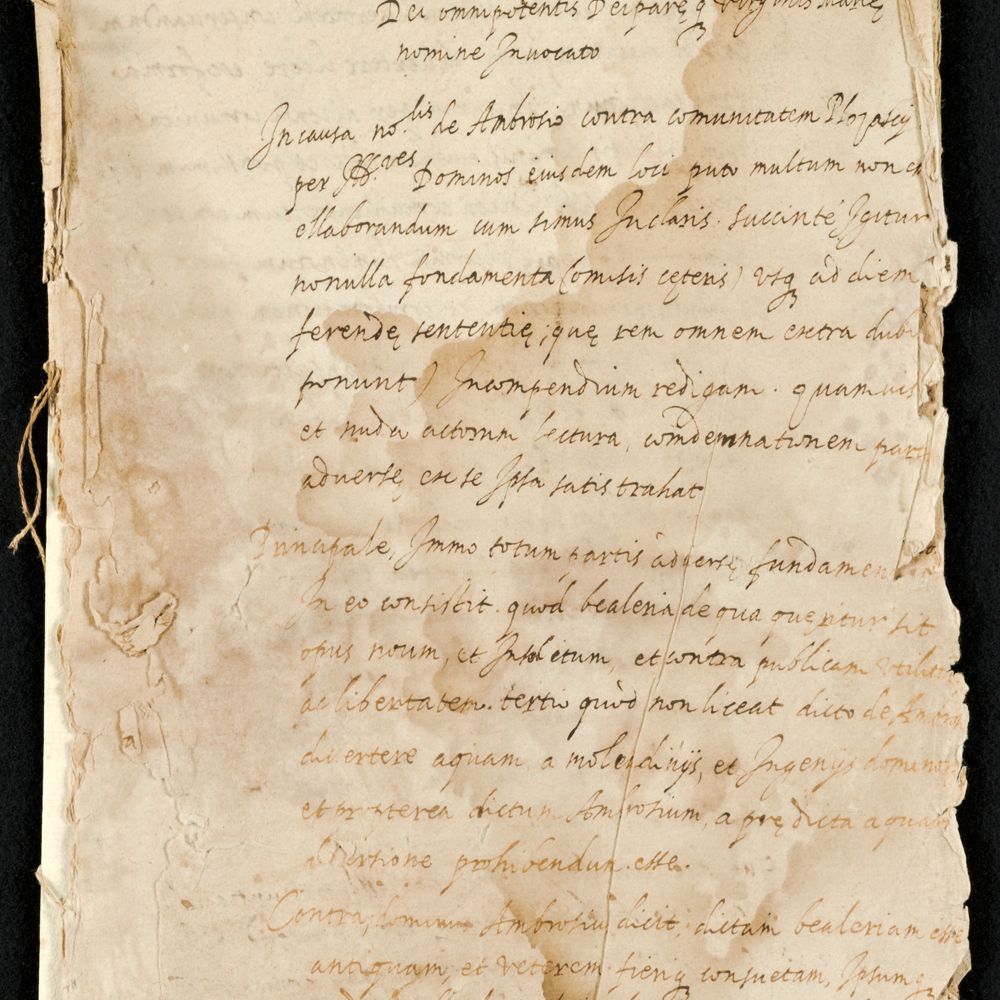 Dei omnipotentis Deiparęq Virginis Marię
nomine Invocato
In causa no.lis de Ambrosio contra comunitatem Plozascÿ
per Ill.ves Dominos eiusdem loci puto multum non
ellaborandum cum simus In claris. succinté, Igitur
nonulla fondamenta (omisis cęteris) vsq ad diem
ferendę sententię, quę rem omnem extra dubi
ponunt) In compendium redigam. quamuis
et nuda actorum lectura, comdemnationem part
adversę ex se Ipsa satis trahat
Principale, Immo totum partis adversę fundamen
In eo consistit. quód bealeria de qua queritur sit
opus nouum, et Insoletum, et contra publicam utilita
ac libertatem. tertio quòd non liceat dicto de Ambros
divertere aquam a molendinÿs, et Ingenÿs domino
et propterea dictum Ambrosium, a prędicta aquar
divertione prohibendum esse.
Contra, dominus Ambrosius dicit, dictam bealeriam esse
antiquam, et veterem fieriq consuetam, Ipsumq